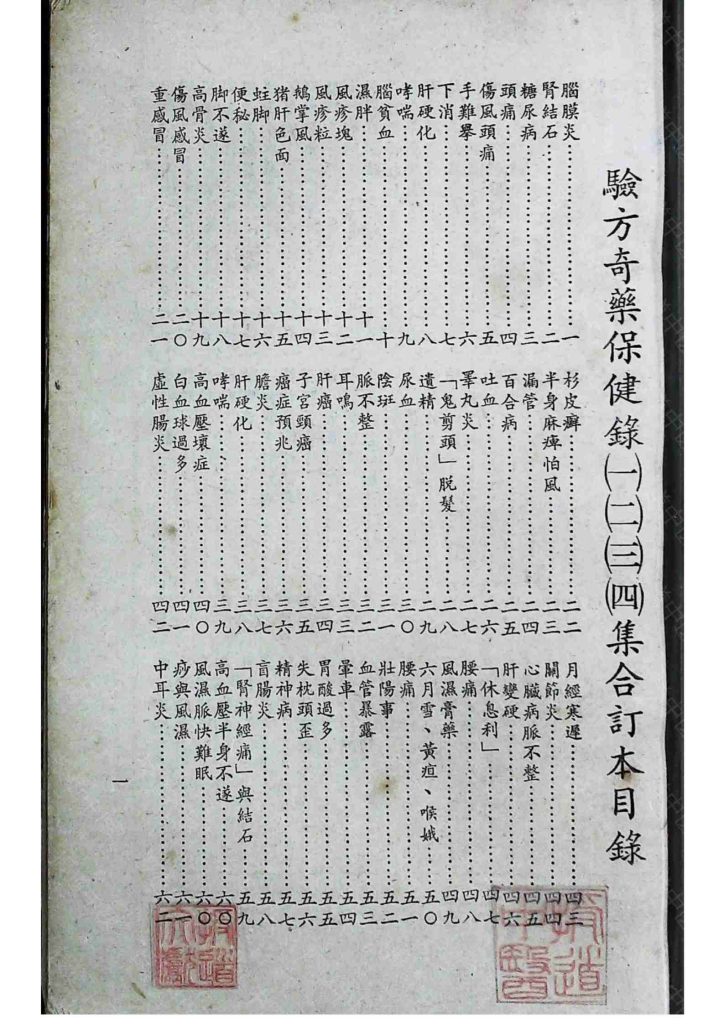 驗方奇藥保健錄㈠㈡㈢㈣集合訂本目錄
腦膜炎……一
腎結石……二
糖尿病……三
頭痛……四
傷風頭痛……五
手難舉……六
下消……七
肝硬化……八
哮喘……九
腦貧血……十
濕胖……十一
風疹塊……十二
風疹粒……十三
鵝掌風……十四
猪肝色面……十五
蛀脚……十六
便秘……十七
脚不遂……十八
高骨炎……十九
傷風感冒……二〇
重感冒……二一
杉皮癬……二二
半身麻痺怕風……二三
漏管……二四
百合病……二五
吐血……二六
睪丸炎……二七
「鬼剪頭」脫髮……二八
遺精……二九
尿血……三〇
陰斑……三一
脈不整……三二
耳鳴……三三
肝癌……三四
子宮頸癌……三五
癌症預兆……三六
膽炎……三七
肝硬化……三八
哮喘……三九
高血壓壞症……四〇
白血球過多……四一
虛性腸炎……四二
月經寒遲……四三
關節炎……四四
心臟病脈不整……四五
肝變硬……四六
「休息利」……四七
腰痛……四八
風濕膏藥……四九
六月雪、黃疸、喉蛾……五〇
腰痛……五一
壯陽事……五二
血管暴露……五三
暈車……五四
胃酸過多……五五
失枕頭歪……五六
精神病……五七
盲腸炎……五八
「腎神經痛」與結石……五九
高血壓半身不遂……六〇
風濕脈快難眠……六〇
痧與風濕……六一
中耳炎……六二
一